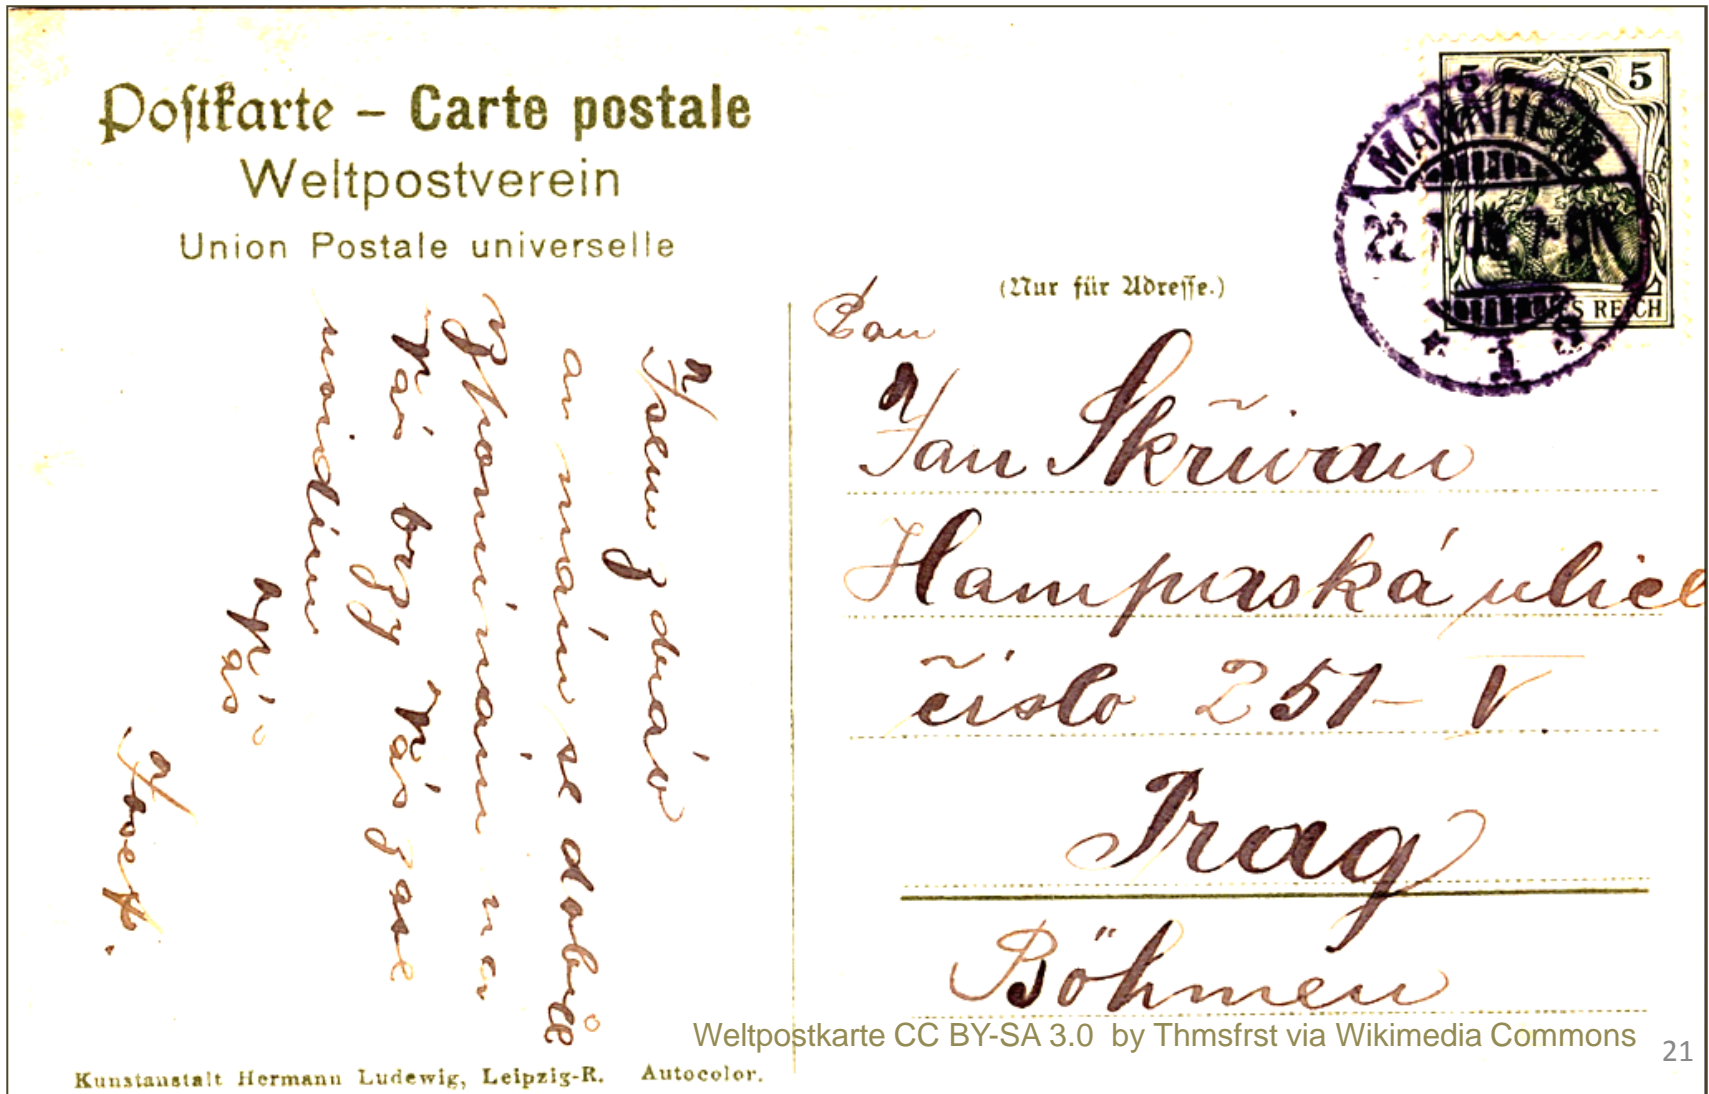 Postkarte – Carte postale
Weltpostverein
Union Postale universelle
5 5
MANNHEIM
22
* 1 S
REICH
(Nur für Adresse.)
Pan
Jan Skřivan
Hampaská ulice
číslo 251– V.
Prag
Böhmen
Jsem zdráv
a mám se dobře
Vzpomínám na
Vás brzy Vás zase
uvidím
Váš
Josef.
Kunstanstalt Hermann Ludewig, Leipzig-R. Autocolor.
Weltpostkarte CC BY-SA 3.0 by Thmsfrst via Wikimedia Commons
21